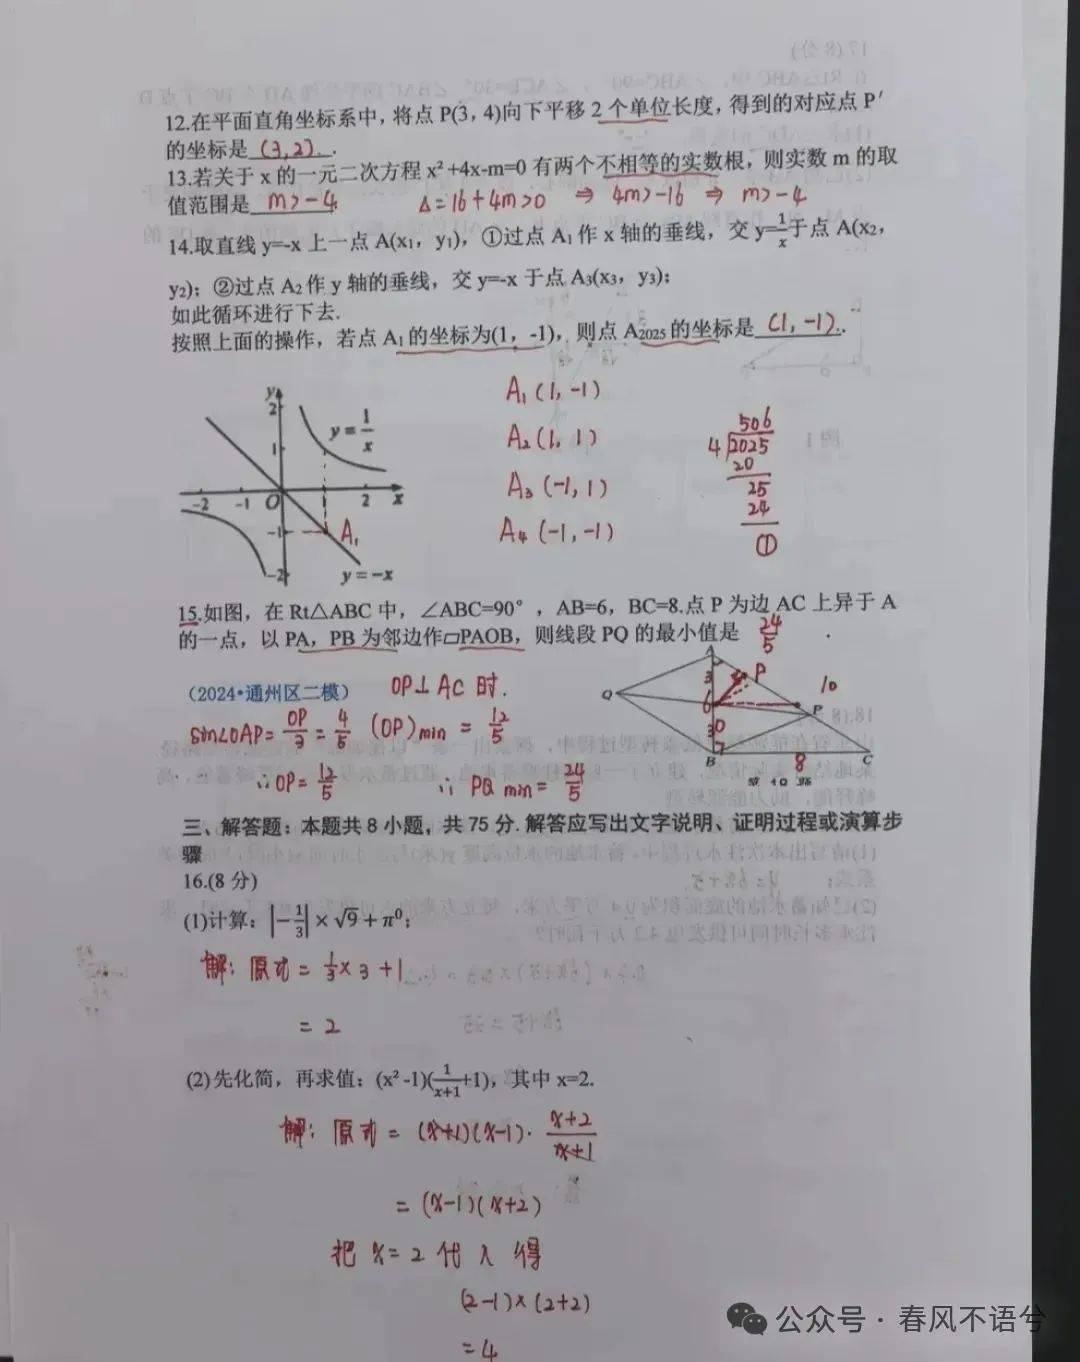 12.在平面直角坐标系中，将点 P(3，4)向下平移 2 个单位长度，得到的对应点 P′
的坐标是 (3,2) .
13.若关于 x 的一元二次方程 x²+4x-m=0 有两个不相等的实数根，则实数 m 的取
值范围是 m>-4 Δ=16+4m>0 ⇒ 4m>-16 ⇒ m>-4
14.取直线 y=-x 上一点 A(x₁，y₁)，①过点 A₁ 作 x 轴的垂线，交 y=1/x于点 A(x₂，
y₂)；②过点 A₂ 作 y 轴的垂线，交 y=-x 于点 A₃(x₃，y₃)；
如此循环进行下去.
按照上面的操作，若点 A₁ 的坐标为(1，-1)，则点 A₂₀₂₅ 的坐标是 (1,-1) .
A₁(1,-1)
A₂(1,1)
A₃(-1,1)
A₄(-1,-1)
506
4 2025
20
25
24
①
y
2
y=1/x
1
-2 -1 O 2 x
-1 A₁
-2 y=-x
15.如图，在 Rt△ABC 中，∠ABC=90°，AB=6，BC=8.点 P 为边 AC 上异于 A
的一点，以 PA，PB 为邻边作▱PAOB，则线段 PQ 的最小值是 24/5 .
（2024•通州区二模） OP⊥AC 时.
sin∠OAP=OP/3=4/5 (OP)min=12/5
∴OP=12/5 ∴ PQ min=24/5
A
3 P 10
Q
6 P
3 O
B 8 C
三、解答题：本题共 8 小题，共 75 分.解答应写出文字说明、证明过程或演算步
骤
16.(8 分)
(1)计算：|-1/3|×√9+π⁰；
解：原式=1/3×3+1
=2
(2)先化简，再求值：(x²-1)(1/(x+1)+1)，其中 x=2.
解：原式=(x+1)(x-1)·(x+2)/(x+1)
=(x-1)(x+2)
把 x=2 代入得
(2-1)×(2+2)
=4
公众号·春风不语兮